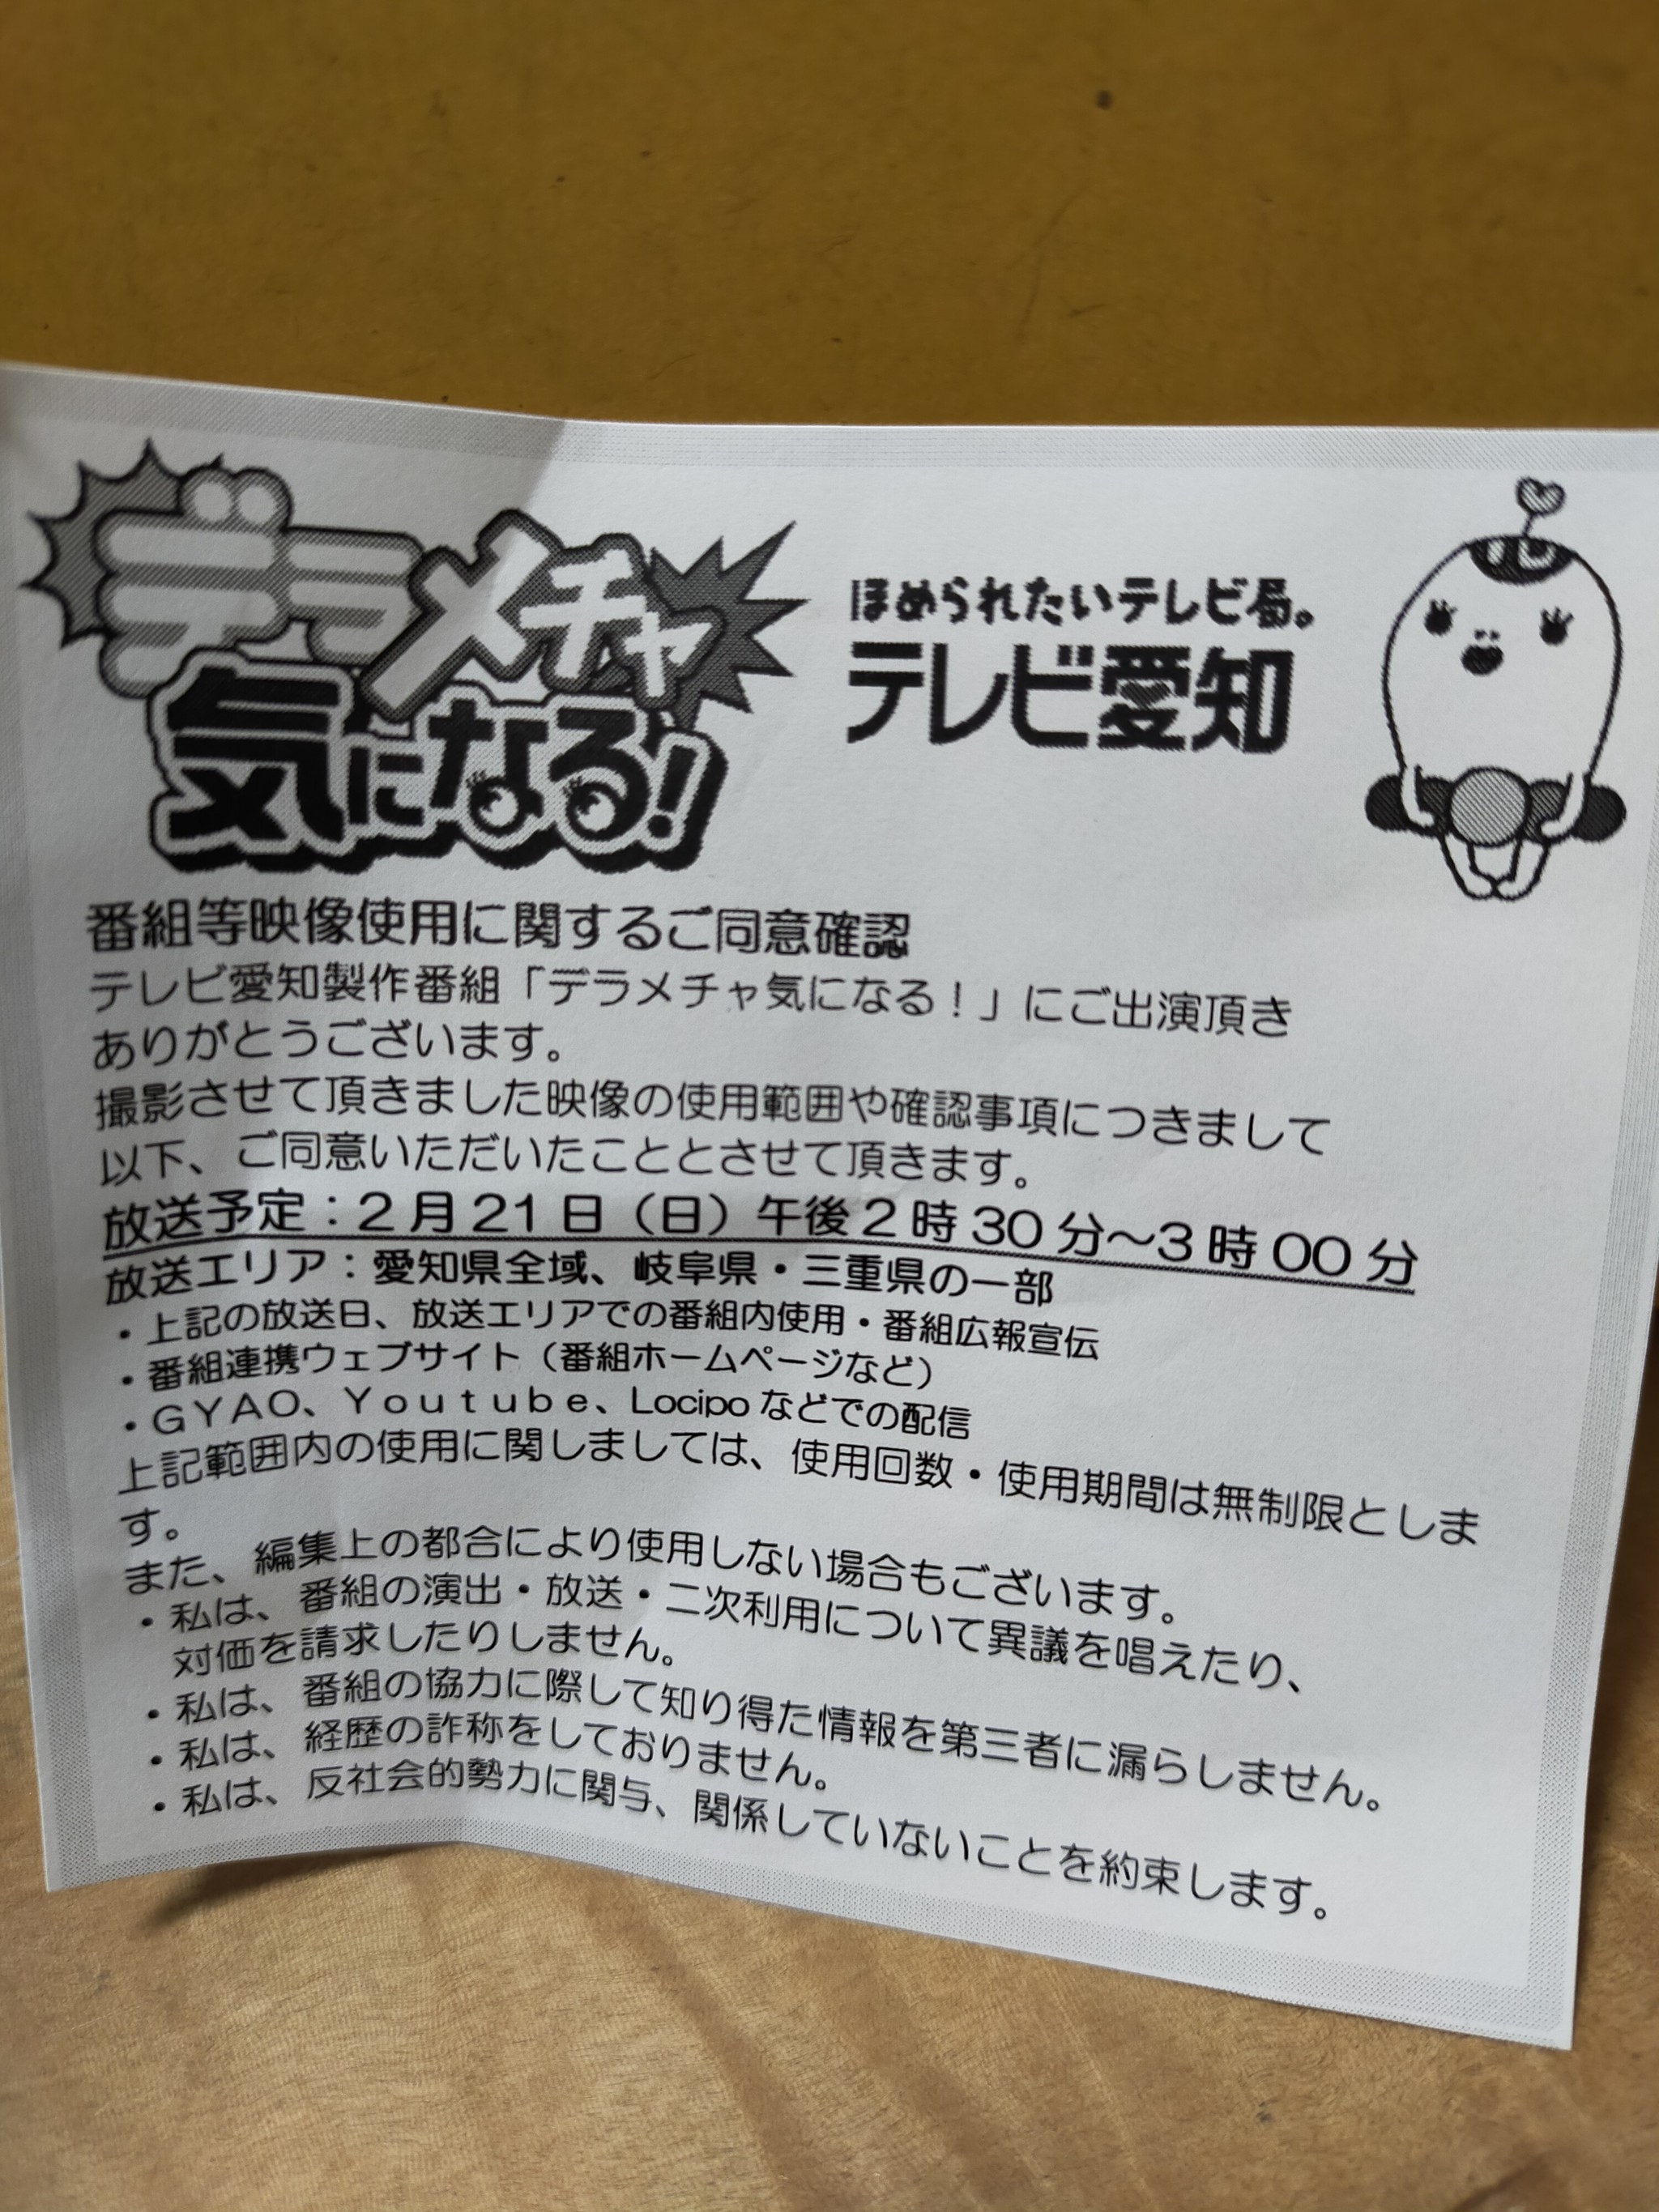 デラメチャ
気になる!
ほめられたいテレビ局。
テレビ愛知
番組等映像使用に関するご同意確認
テレビ愛知製作番組「デラメチャ気になる！」にご出演頂き
ありがとうございます。
撮影させて頂きました映像の使用範囲や確認事項につきまして
以下、ご同意いただいたこととさせて頂きます。
放送予定：2月21日（日）午後2時30分～3時00分
放送エリア：愛知県全域、岐阜県・三重県の一部
・上記の放送日、放送エリアでの番組内使用・番組広報宣伝
・番組連携ウェブサイト（番組ホームページなど）
・GYAO、Ｙｏｕｔｕｂｅ、Locipoなどでの配信
上記範囲内の使用に関しましては、使用回数・使用期間は無制限としま
す。
また、編集上の都合により使用しない場合もございます。
・私は、番組の演出・放送・二次利用について異議を唱えたり、
対価を請求したりしません。
・私は、番組の協力に際して知り得た情報を第三者に漏らしません。
・私は、経歴の詐称をしておりません。
・私は、反社会的勢力に関与、関係していないことを約束します。